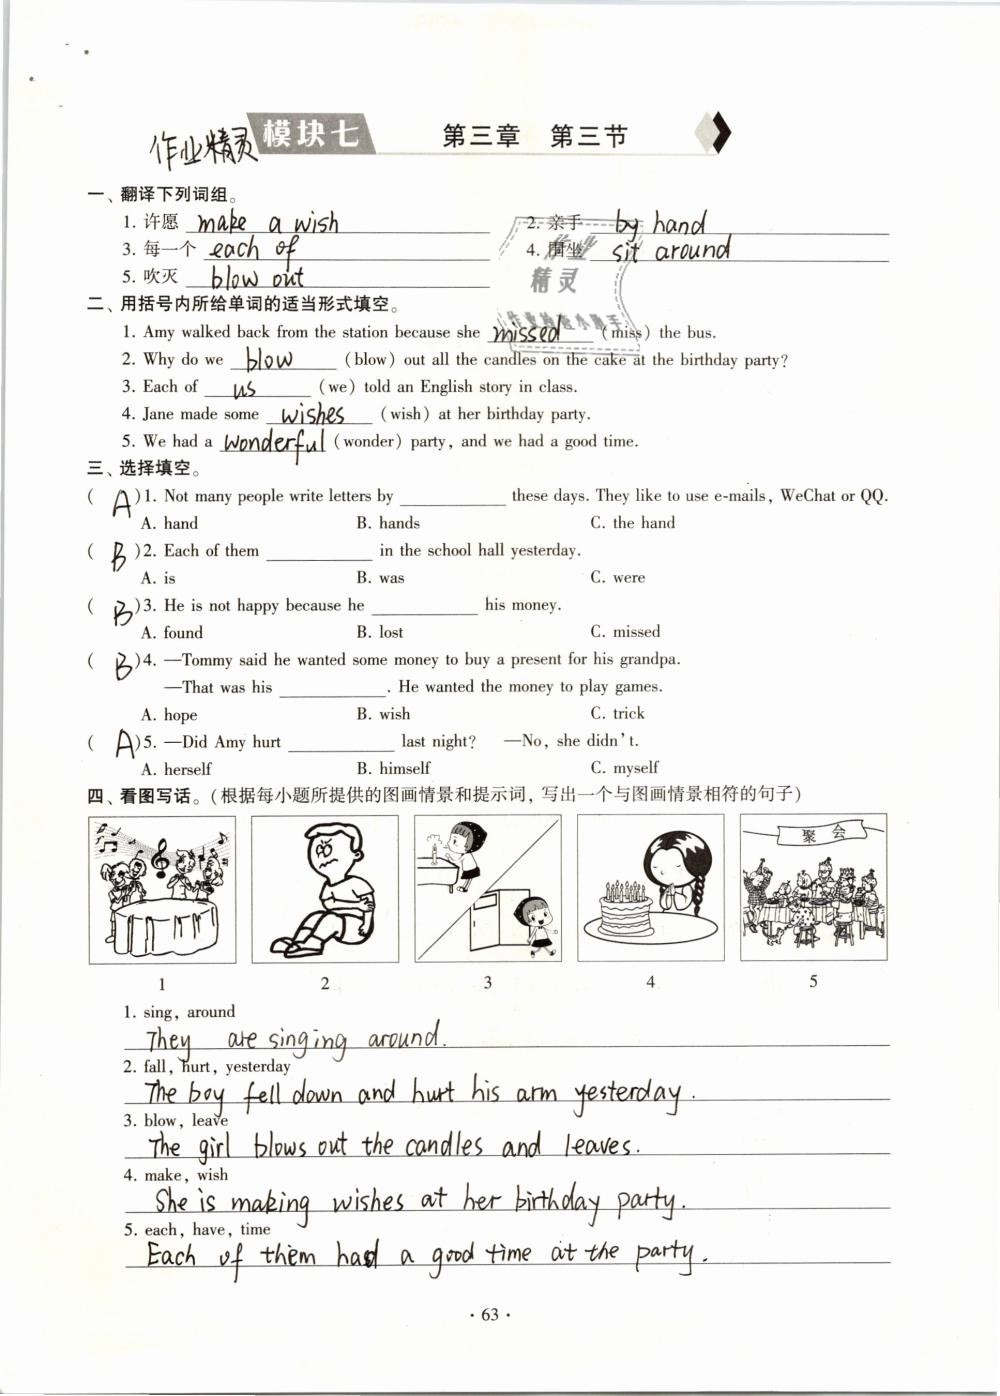 作业精灵 模块七 第三章 第三节
一、翻译下列词组。
1. 许愿 make a wish 2. 亲手 by hand
3. 每一个 each of 4. 围坐 sit around
5. 吹灭 blow out
作业
精灵
二、用括号内所给单词的适当形式填空。
1. Amy walked back from the station because she missed (miss) the bus.
2. Why do we blow (blow) out all the candles on the cake at the birthday party?
3. Each of us (we) told an English story in class.
4. Jane made some wishes (wish) at her birthday party.
5. We had a wonderful (wonder) party, and we had a good time.
三、选择填空。
( A )1. Not many people write letters by ____ these days. They like to use e-mails, WeChat or QQ.
A. hand B. hands C. the hand
( B )2. Each of them ____ in the school hall yesterday.
A. is B. was C. were
( B )3. He is not happy because he ____ his money.
A. found B. lost C. missed
( B )4. —Tommy said he wanted some money to buy a present for his grandpa.
—That was his ____. He wanted the money to play games.
A. hope B. wish C. trick
( A )5. —Did Amy hurt ____ last night? —No, she didn't.
A. herself B. himself C. myself
四、看图写话。(根据每小题所提供的图画情景和提示词，写出一个与图画情景相符的句子)
聚会
1 2 3 4 5
1. sing, around
They are singing around.
2. fall, hurt, yesterday
The boy fell down and hurt his arm yesterday.
3. blow, leave
The girl blows out the candles and leaves.
4. make, wish
She is making wishes at her birthday party.
5. each, have, time
Each of them had a good time at the party.
· 63 ·